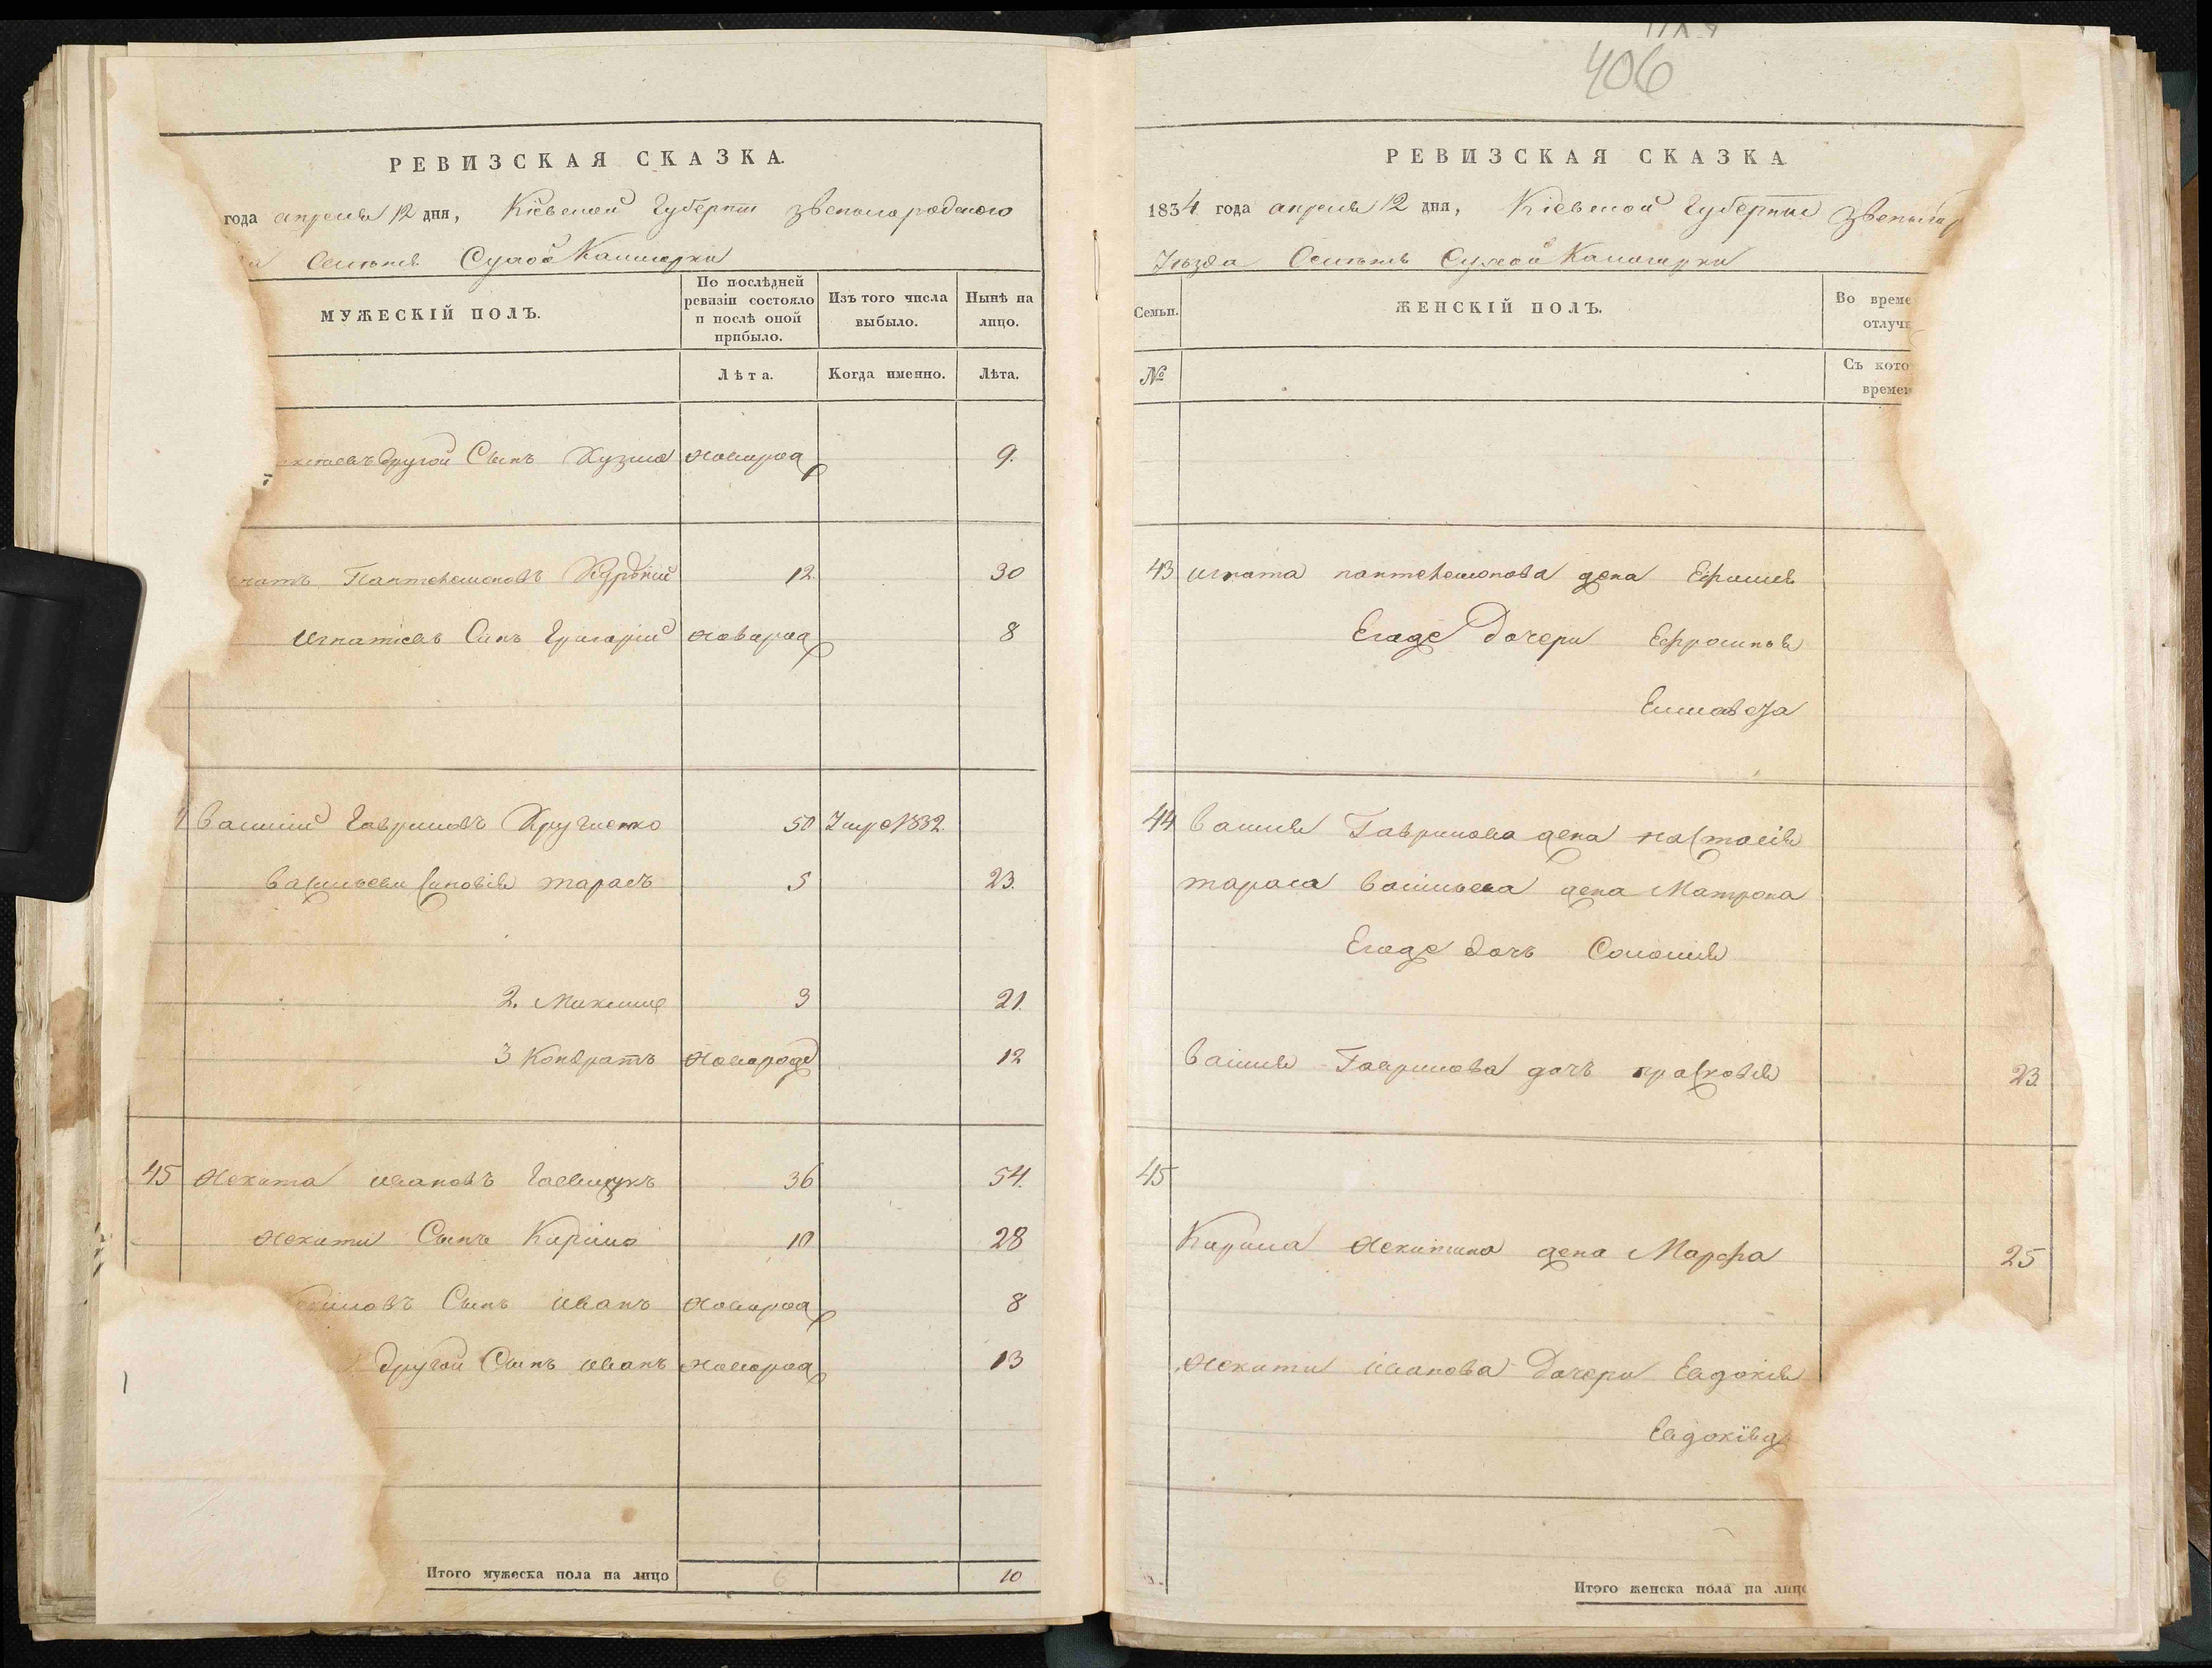 РЕВИЗСКАЯ СКАЗКА.
года апреля 12 дня, Кіевской Губерніи Звенигородского
Селенія Сухой Калигорки
МУЖЕСКІЙ ПОЛЪ.
По послѣдней ревизіи состояло и послѣ оной прибыло.
Изъ того числа выбыло.
Нынѣ на лицо.
Лѣта.
Когда именно.
Лѣта.
другой Сынъ Кузма новорож 9.
Пантелемоновъ 12. 30
Игнатіевъ Синъ Григорій новорож 8
Василій Гавриловъ 50 Умре 1832.
Васильеви Синовія Тарасъ 5 23.
2. Максимъ 3 21.
3 Кондратъ новорожд 12
45 Некита Ивановъ 36 54.
Некити Сынъ Кирило 10 28
Сынъ Иванъ новорож 8
другой Сынъ Иванъ новорож 13
Итого мужеска пола на лицо 6 10
406
РЕВИЗСКАЯ СКАЗКА
1834 года апреля 12 дня, Кіевской Губерніи
Уезда Селенія Сухой Калигорки
Семьи.
ЖЕНСКІЙ ПОЛЪ.
Во време
отлучк
№
Съ кото
времен
43 Игната Пантелемонова жена
Егоже дочери Ефросинія
Елисавета
44 Василія Гаврилова жена Настасія
Тараса Васильева жена Матрона
Егоже дочь Соломія
Василія Гаврилова дочь Прасковія 23.
45
Кирила Некитина жена Марфа 25
Некити Иванова дочери Евдокія
Евдокія
Итого женска пола на лицо